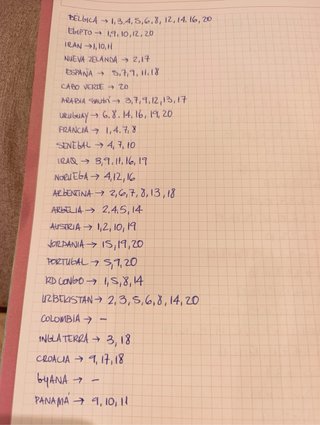 BÉLGICA → 1,3,4,5,6,8,12,14,16,20
EGIPTO → 1,9,10,12,20
IRAN → 1,10,11
NUEVA ZELANDA → 2,17
ESPAÑA → 5,7,9,11,18
CABO VERDE → 20
ARABIA SAUDÍ → 3,7,9,12,13,17
URUGUAY → 6,8,14,16,19,20
FRANCIA → 1,4,7,8
SENEGAL → 4,7,10
IRAQ → 3,9,11,16,19
NORUEGA → 4,12,16
ARGENTINA → 2,6,7,8,13,18
ARGELIA → 2,4,5,14
AUSTRIA → 1,2,10,19
JORDANIA → 15,19,20
PORTUGAL → 5,9,20
RD CONGO → 1,5,8,14
UZBEKISTAN → 2,3,5,6,8,14,20
COLOMBIA → -
INGLATERRA → 3,18
CROACIA → 9,17,18
GHANA → -
PANAMÁ → 9,10,11